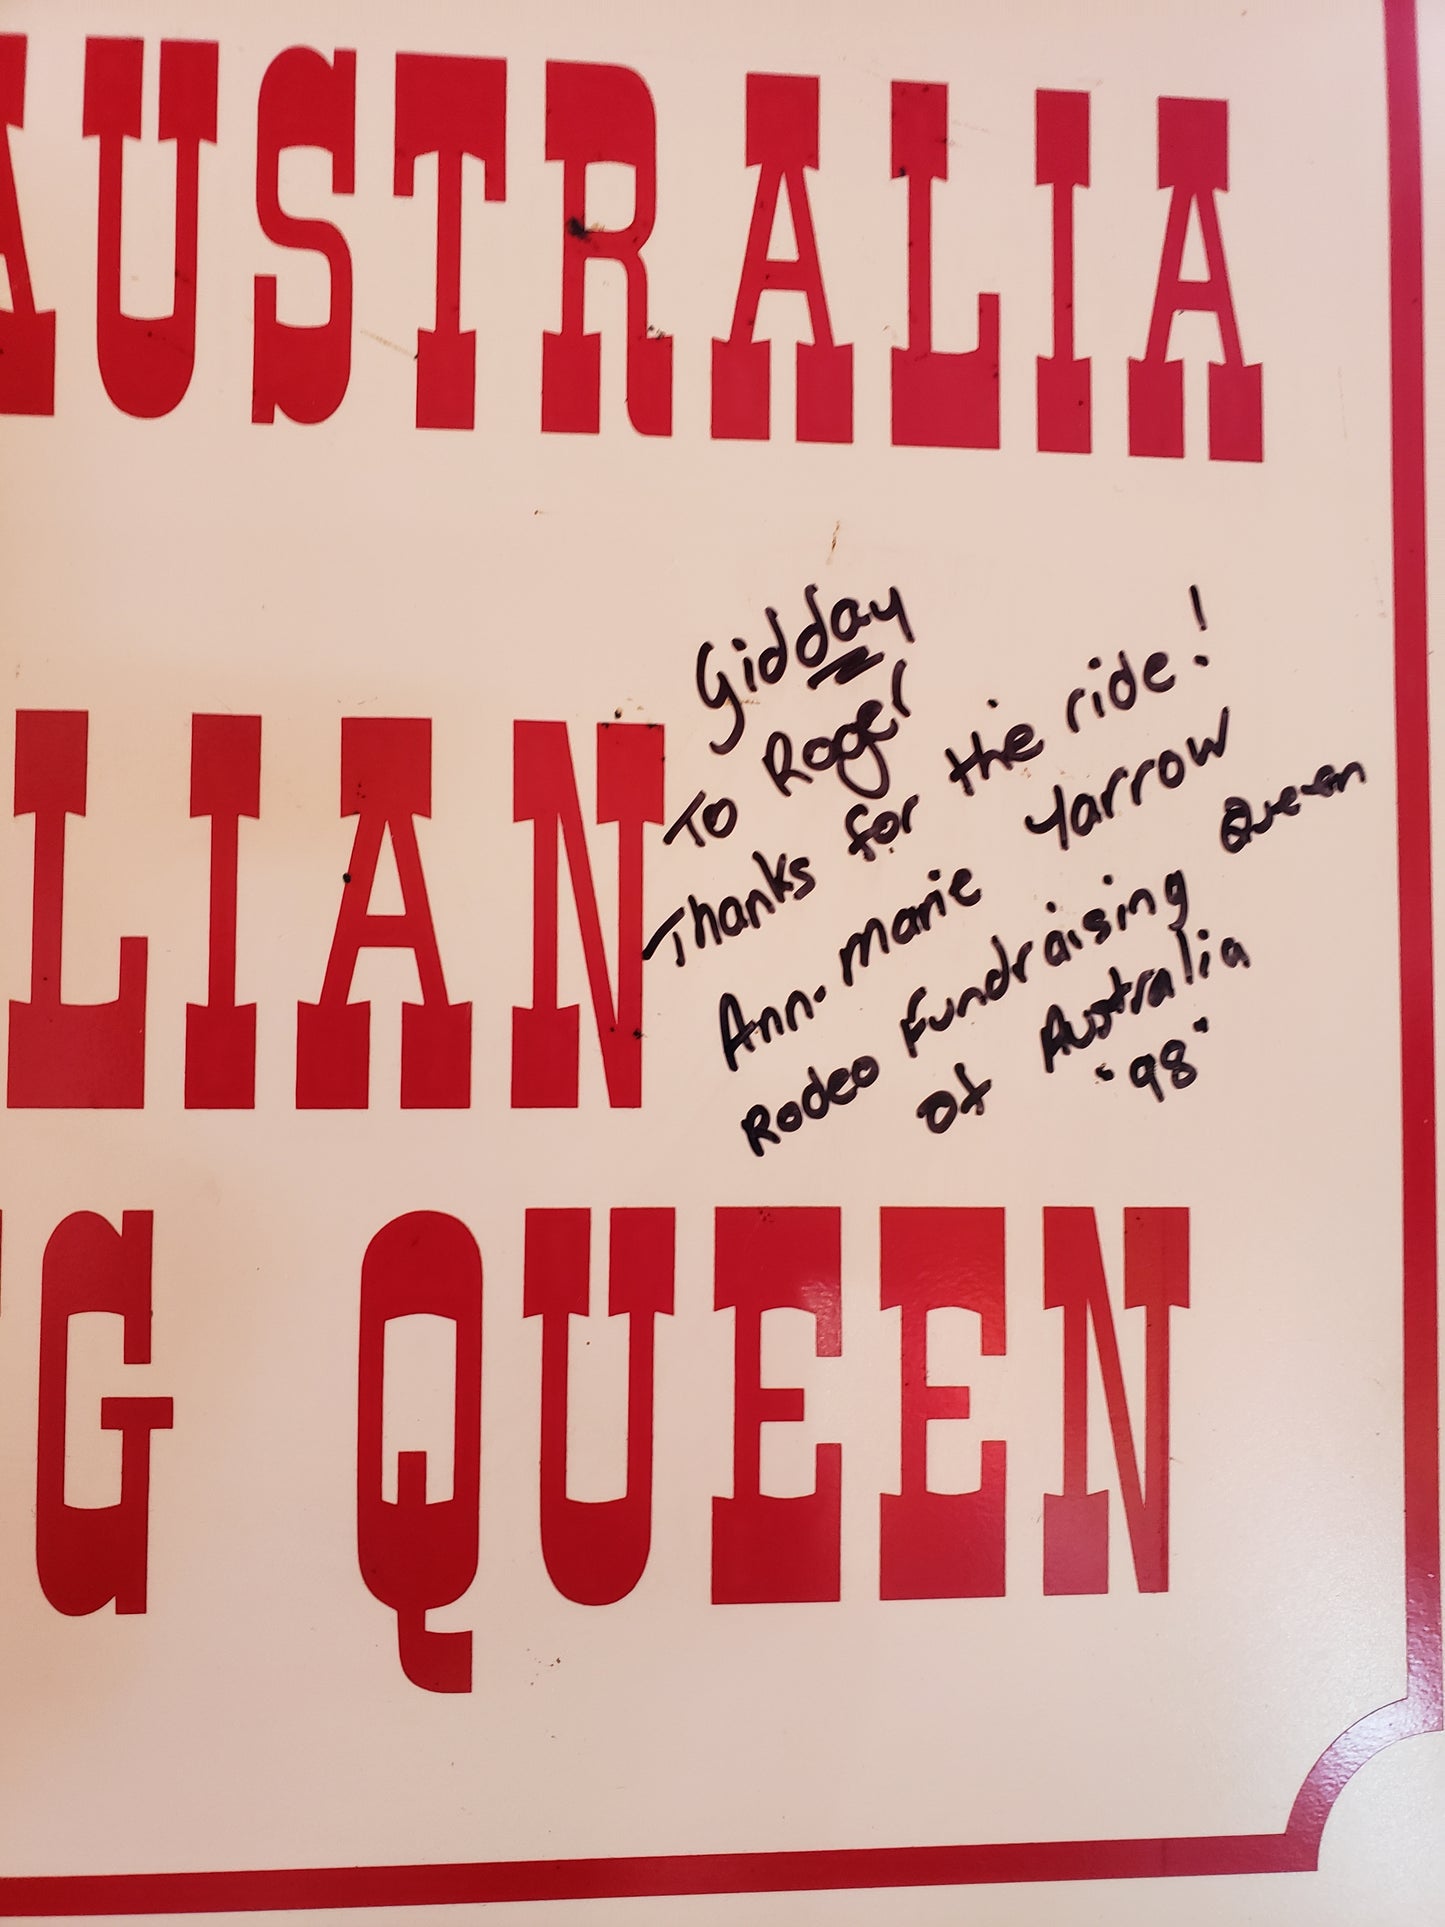 AUSTRALIA
Gidday
To Roger
Thanks for the ride!
LIAN
Ann-marie Yarrow
Rodeo Fundraising Queen
of Australia
"98"
G QUEEN